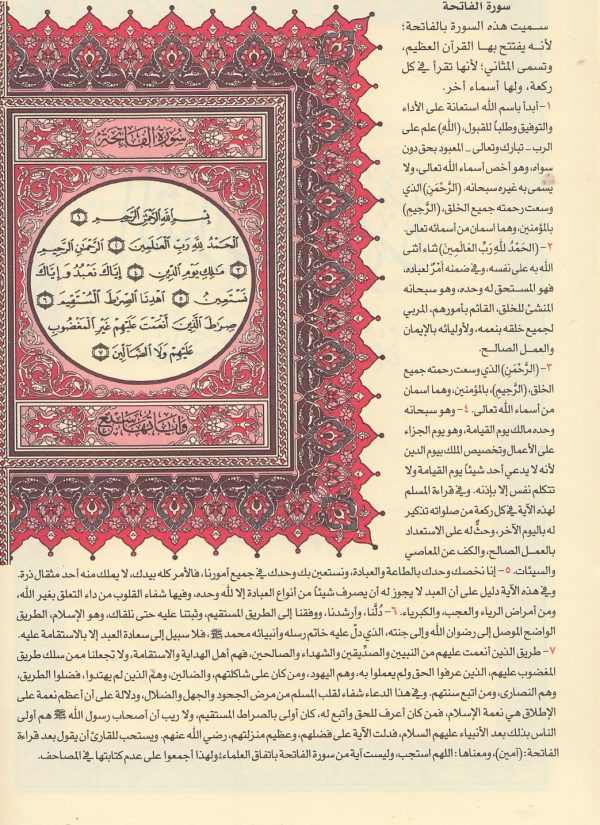 سورة الفاتحة
سميت هذه السورة بالفاتحة؛
لأنه يفتتح بها القرآن العظيم،
وتسمى المثاني؛ لأنها تقرأ في كل
ركعة، ولها أسماء أخر.
١- أبدأ باسم الله استعانة على الأداء
والتوفيق وطلباً للقبول، (الله) علم على
الرب - تبارك وتعالى - المعبود بحق دون
سواه، وهو أخص أسماء الله تعالى، ولا
يسمى به غيره سبحانه. (الرَّحْمَنِ) الذي
وسعت رحمته جميع الخلق، (الرَّحِيمِ)
بالمؤمنين، وهما اسمان من أسمائه تعالى.
٢- (الحَمْدُ للهِ رَبِّ العَالَمِينَ) ثناء أثنى
الله به على نفسه، وفي ضمنه أمْرٌ لعباده،
فهو المستحق له وحده، وهو سبحانه
المنشئ للخلق، القائم بأمورهم، المربي
لجميع خلقه بنعمه، ولأوليائه بالإيمان
والعمل الصالح.
٣- (الرَّحْمَنِ) الذي وسعت رحمته جميع
الخلق، (الرَّحِيمِ)، بالمؤمنين، وهما اسمان
من أسماء الله تعالى. ٤- وهو سبحانه
وحده مالك يوم القيامة، وهو يوم الجزاء
على الأعمال وتخصيص الملك بيوم الدين
لأنه لا يدعي أحد شيئاً يوم القيامة ولا
تتكلم نفس إلا بإذنه. وفي قراءة المسلم
لهذه الآية في كل ركعة من صلواته تذكير
له باليوم الآخر، وحثٌّ له على الاستعداد
بالعمل الصالح، والكف عن المعاصي
والسيئات. ٥- إنا نخصك وحدك بالطاعة والعبادة، ونستعين بك وحدك في جميع أمورنا، فالأمر كله بيدك، لا يملك منه أحد مثقال ذرة.
وفي هذه الآية دليل على أن العبد لا يجوز له أن يصرف شيئاً من أنواع العبادة إلا لله وحده، وفيها شفاء القلوب من داء التعلق بغير الله،
ومن أمراض الرياء والعجب، والكبرياء. ٦- دُلَّنا، وأرشدنا، ووفقنا إلى الطريق المستقيم، وثبتنا عليه حتى نلقاك، وهو الإسلام، الطريق
الواضح الموصل إلى رضوان الله وإلى جنته، الذي دلّ عليه خاتم رسله وأنبيائه محمد ﷺ، فلا سبيل إلى سعادة العبد إلا بالاستقامة عليه.
٧- طريق الذين أنعمت عليهم من النبيين والصدِّيقين والشهداء والصالحين، فهم أهل الهداية والاستقامة، ولا تجعلنا ممن سلك طريق
المغضوب عليهم، الذين عرفوا الحق ولم يعملوا به، وهم اليهود، ومن كان على شاكلتهم، والضالين، وهم الذين لم يهتدوا، فضلوا الطريق،
وهم النصارى، ومن اتبع سنتهم. وفي هذا الدعاء شفاء لقلب المسلم من مرض الجحود والجهل والضلال، ودلالة على أن أعظم نعمة على
الإطلاق هي نعمة الإسلام، فمن كان أعرف للحق وأتبع له، كان أولى بالصراط المستقيم، ولا ريب أن أصحاب رسول الله ﷺ هم أولى
الناس بذلك بعد الأنبياء عليهم السلام، فدلت الآية على فضلهم، وعظيم منزلتهم، رضي الله عنهم. ويستحب للقارئ أن يقول بعد قراءة
الفاتحة: (آمين)، ومعناها: اللهم استجب، وليست آية من سورة الفاتحة باتفاق العلماء؛ ولهذا أجمعوا على عدم كتابتها في المصاحف.
سُورَةُ الفَاتِحَةِ
بِسْمِ اللَّهِ الرَّحْمَٰنِ الرَّحِيمِ ١
الْحَمْدُ لِلَّهِ رَبِّ الْعَالَمِينَ ٢ الرَّحْمَٰنِ الرَّحِيمِ
٣ مَالِكِ يَوْمِ الدِّينِ ٤ إِيَّاكَ نَعْبُدُ وَإِيَّاكَ
نَسْتَعِينُ ٥ اهْدِنَا الصِّرَاطَ الْمُسْتَقِيمَ ٦
صِرَاطَ الَّذِينَ أَنْعَمْتَ عَلَيْهِمْ غَيْرِ الْمَغْضُوبِ
عَلَيْهِمْ وَلَا الضَّالِّينَ ٧
وَآيَاتُهَا سَبْعٌ